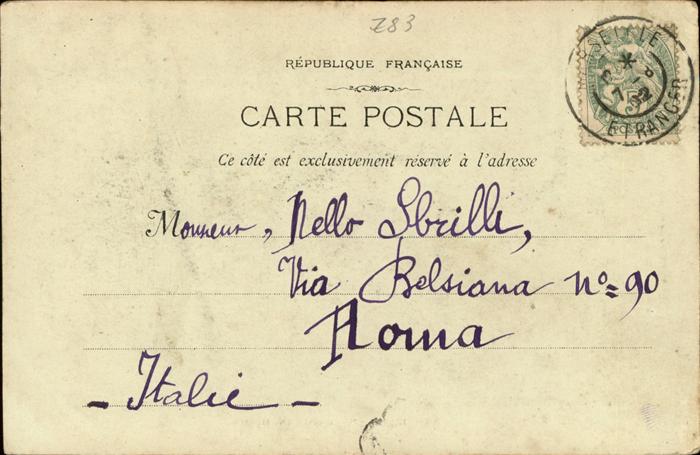 Z83
RÉPUBLIQUE FRANÇAISE
CARTE POSTALE
Ce côté est exclusivement réservé à l'adresse
Monsieur, Nello Sbrilli,
Via Belsiana nº=90
Roma
- Italie -
ETRANGER